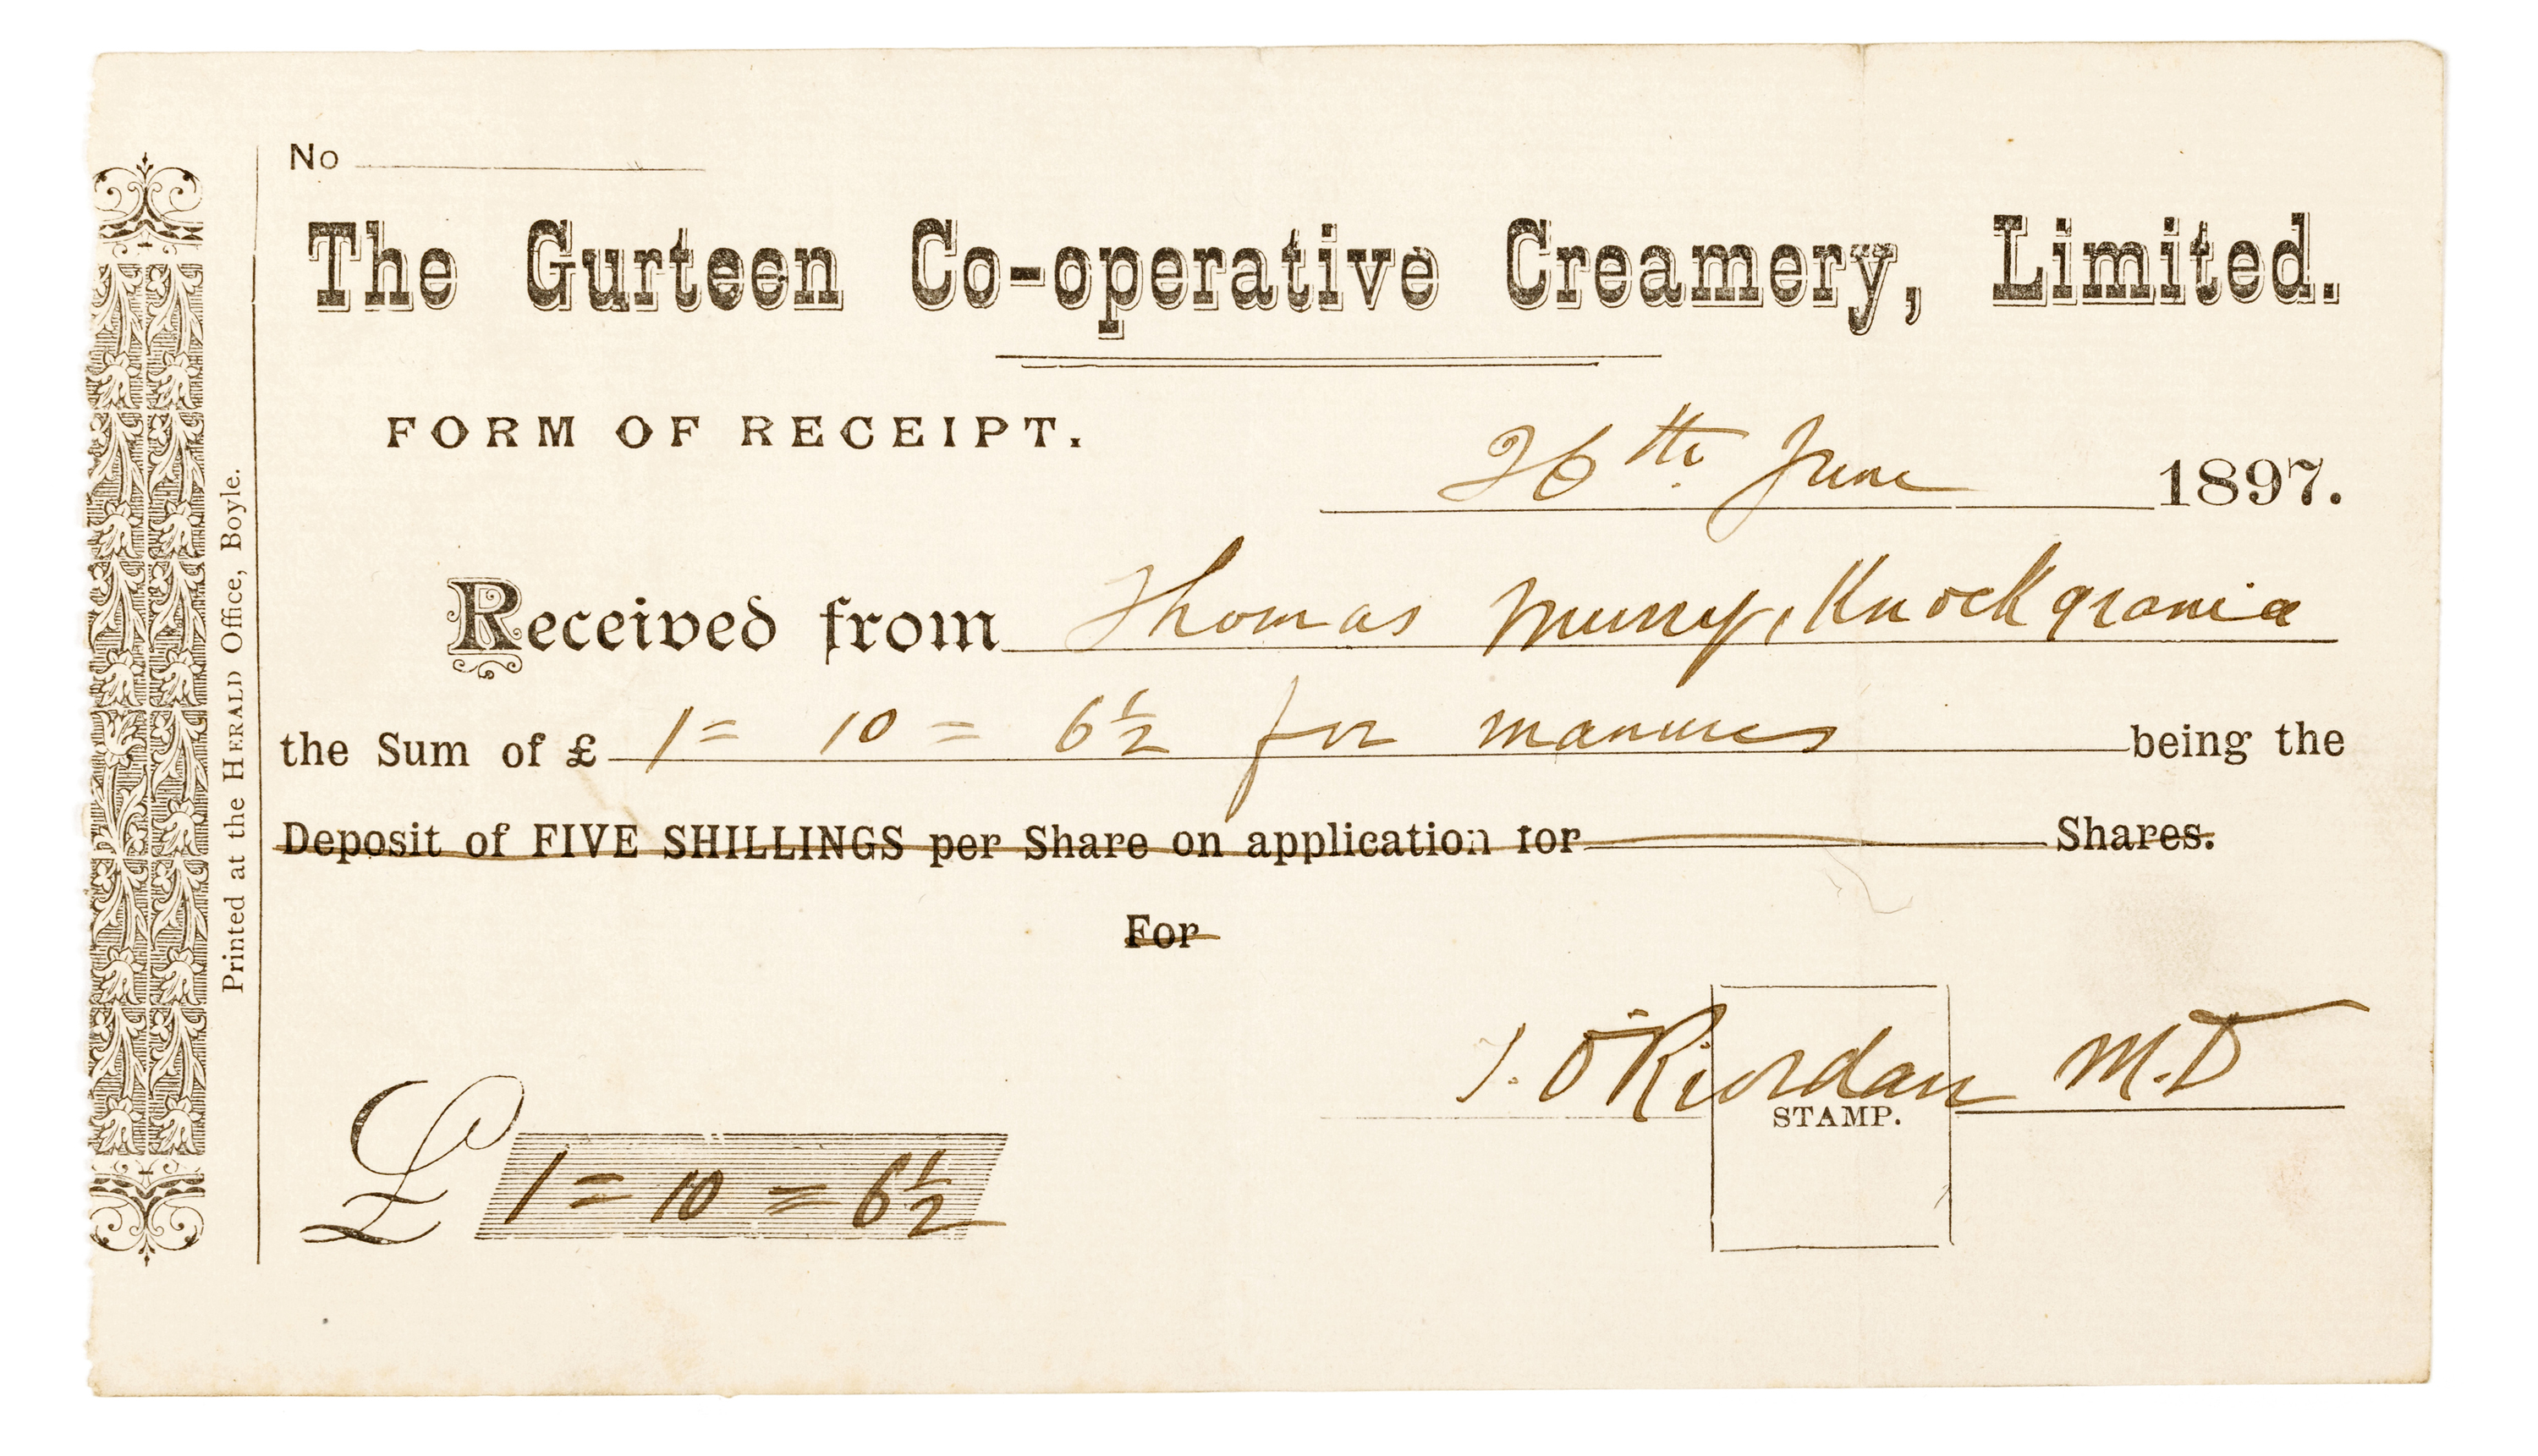 No
The Gurteen Co-operative Creamery, Limited.
FORM OF RECEIPT.
26th June 1897.
Received from Thomas Murry, Knockgrania
the Sum of £ 1 = 10 = 6½ for manures being the
Deposit of FIVE SHILLINGS per Share on application for Shares.
For
T. O'Riordan M.D
STAMP.
£ 1 = 10 = 6½
Printed at the HERALD Office, Boyle.